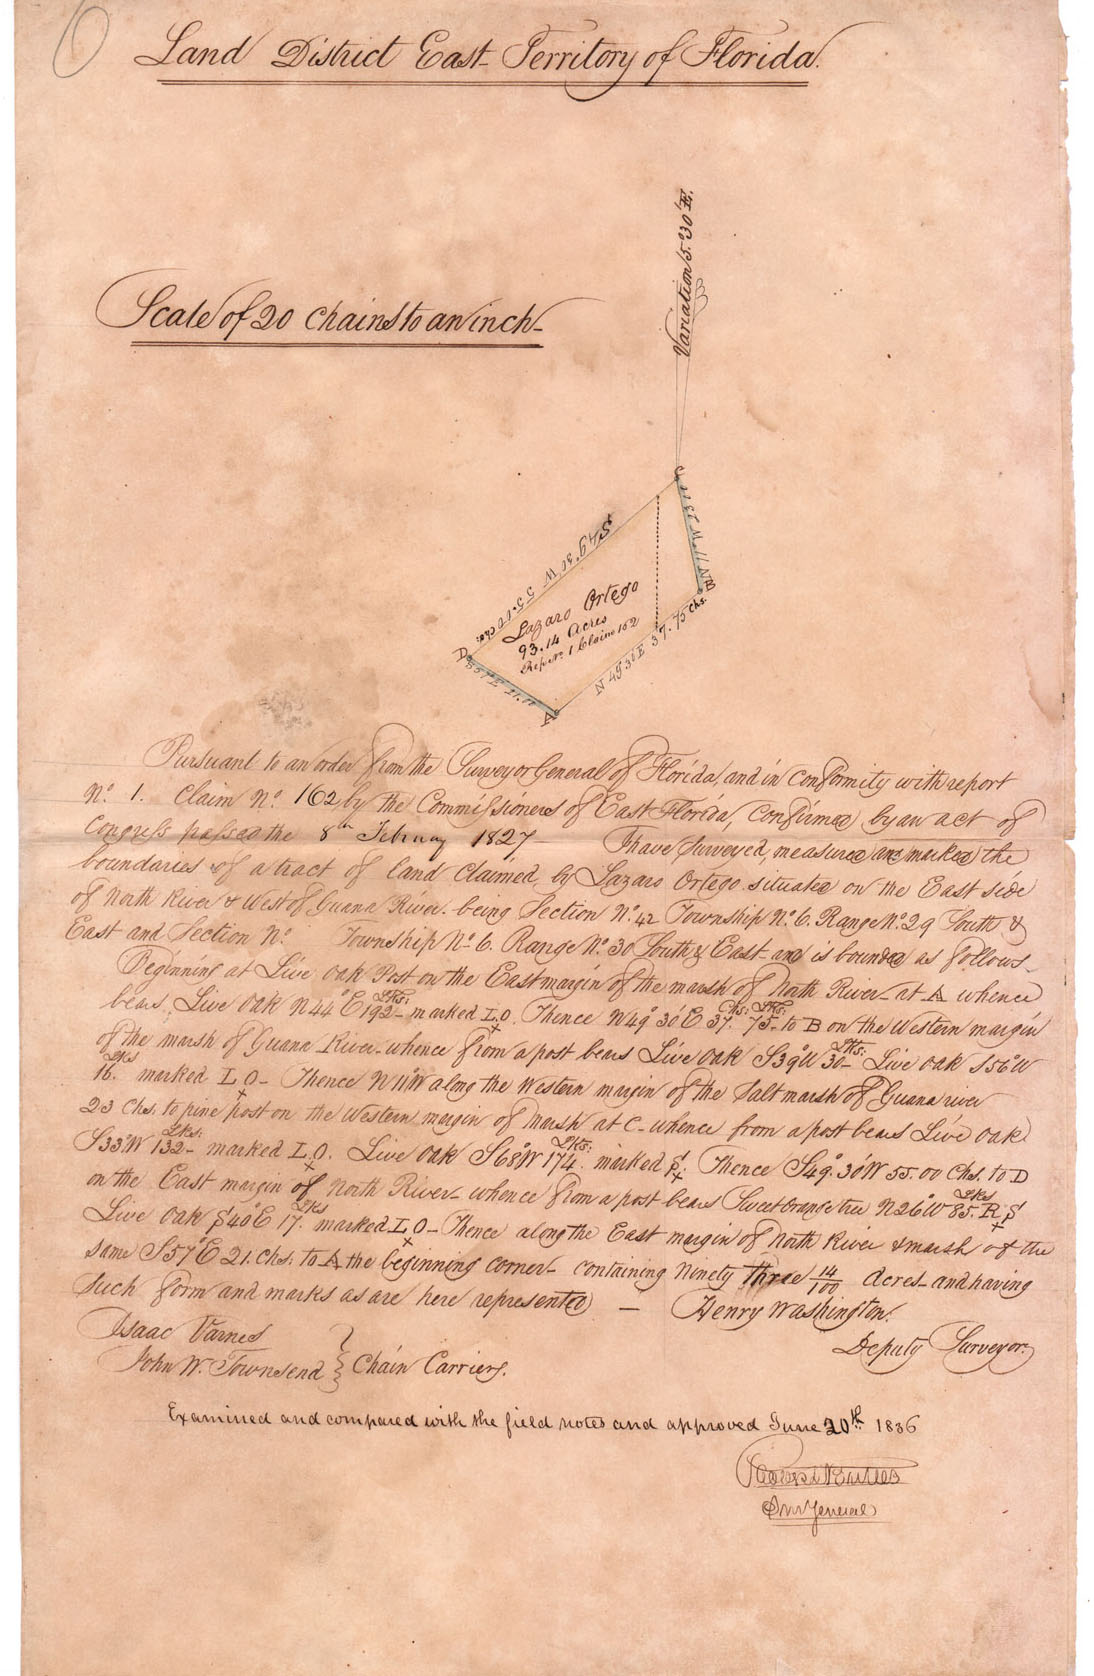 Land District East Territory of Florida.
Variation 5.°30'E.
Scale of 20 Chains to an inch
C
S 49°30' W 55.00 chs.
N 11 W 23
B
Lazaro Ortego
93.14 Acres
Rep. No. 1 Claim 162
N 49°30' E 37.75 Chs.
D
S 57 E 21.
A
Pursuant to an order from the Surveyor General of Florida, and in conformity with report
No. 1. Claim No. 162 by the Commissioners of East Florida, confirmed by an act of
Congress passed the 8th February 1827— I have surveyed, measured and marked the
boundaries of a tract of land claimed, by Lazaro Ortego situated on the East side
of North River & West of Guana River. being Section No. 42 Township No. 6. Range No. 29 South &
East and Section No. Township No. 6. Range No. 30 South & East and is bounded as follows—
Beginning at Live oak Post on the East margin of the marsh of North River— at A whence
bears, Live oak N44°E 192 Lks: marked L.O. Thence N49°30'E 37. Chs: 75 Lks: to B on the Western margin
of the marsh of Guana River— whence from a post bears Live oak S39°W 30 Lks:— Live oak S56°W
16. Lks marked L O— Thence N11°W along the Western margin of the Salt marsh of Guana river
23 Chs. to pine post on the Western margin of Marsh at C— whence from a post bears Live oak
S33°W 132 Lks: marked L.O. Live oak S68°W 174 Lks: marked S. Thence S49°.30'W 55.00 Chs. to D
on the East margin of North River— whence from a post bears Sweet Orange tree N26°W 85. Lks R. S
Live oak S40°E 17. Lks marked L O— Thence along the East margin of North River & marsh of the
same S57°E 21. Chs: to A the beginning corner— containing Ninety Three 14/100 Acres— and having
such form and marks as are here represented — Henry Washington.
Isaac Varnes
Deputy Surveyor.
John W. Townsend } Chain Carriers.
Examined and compared with the field notes and approved June 20th 1836
Robert Butler
Sur General